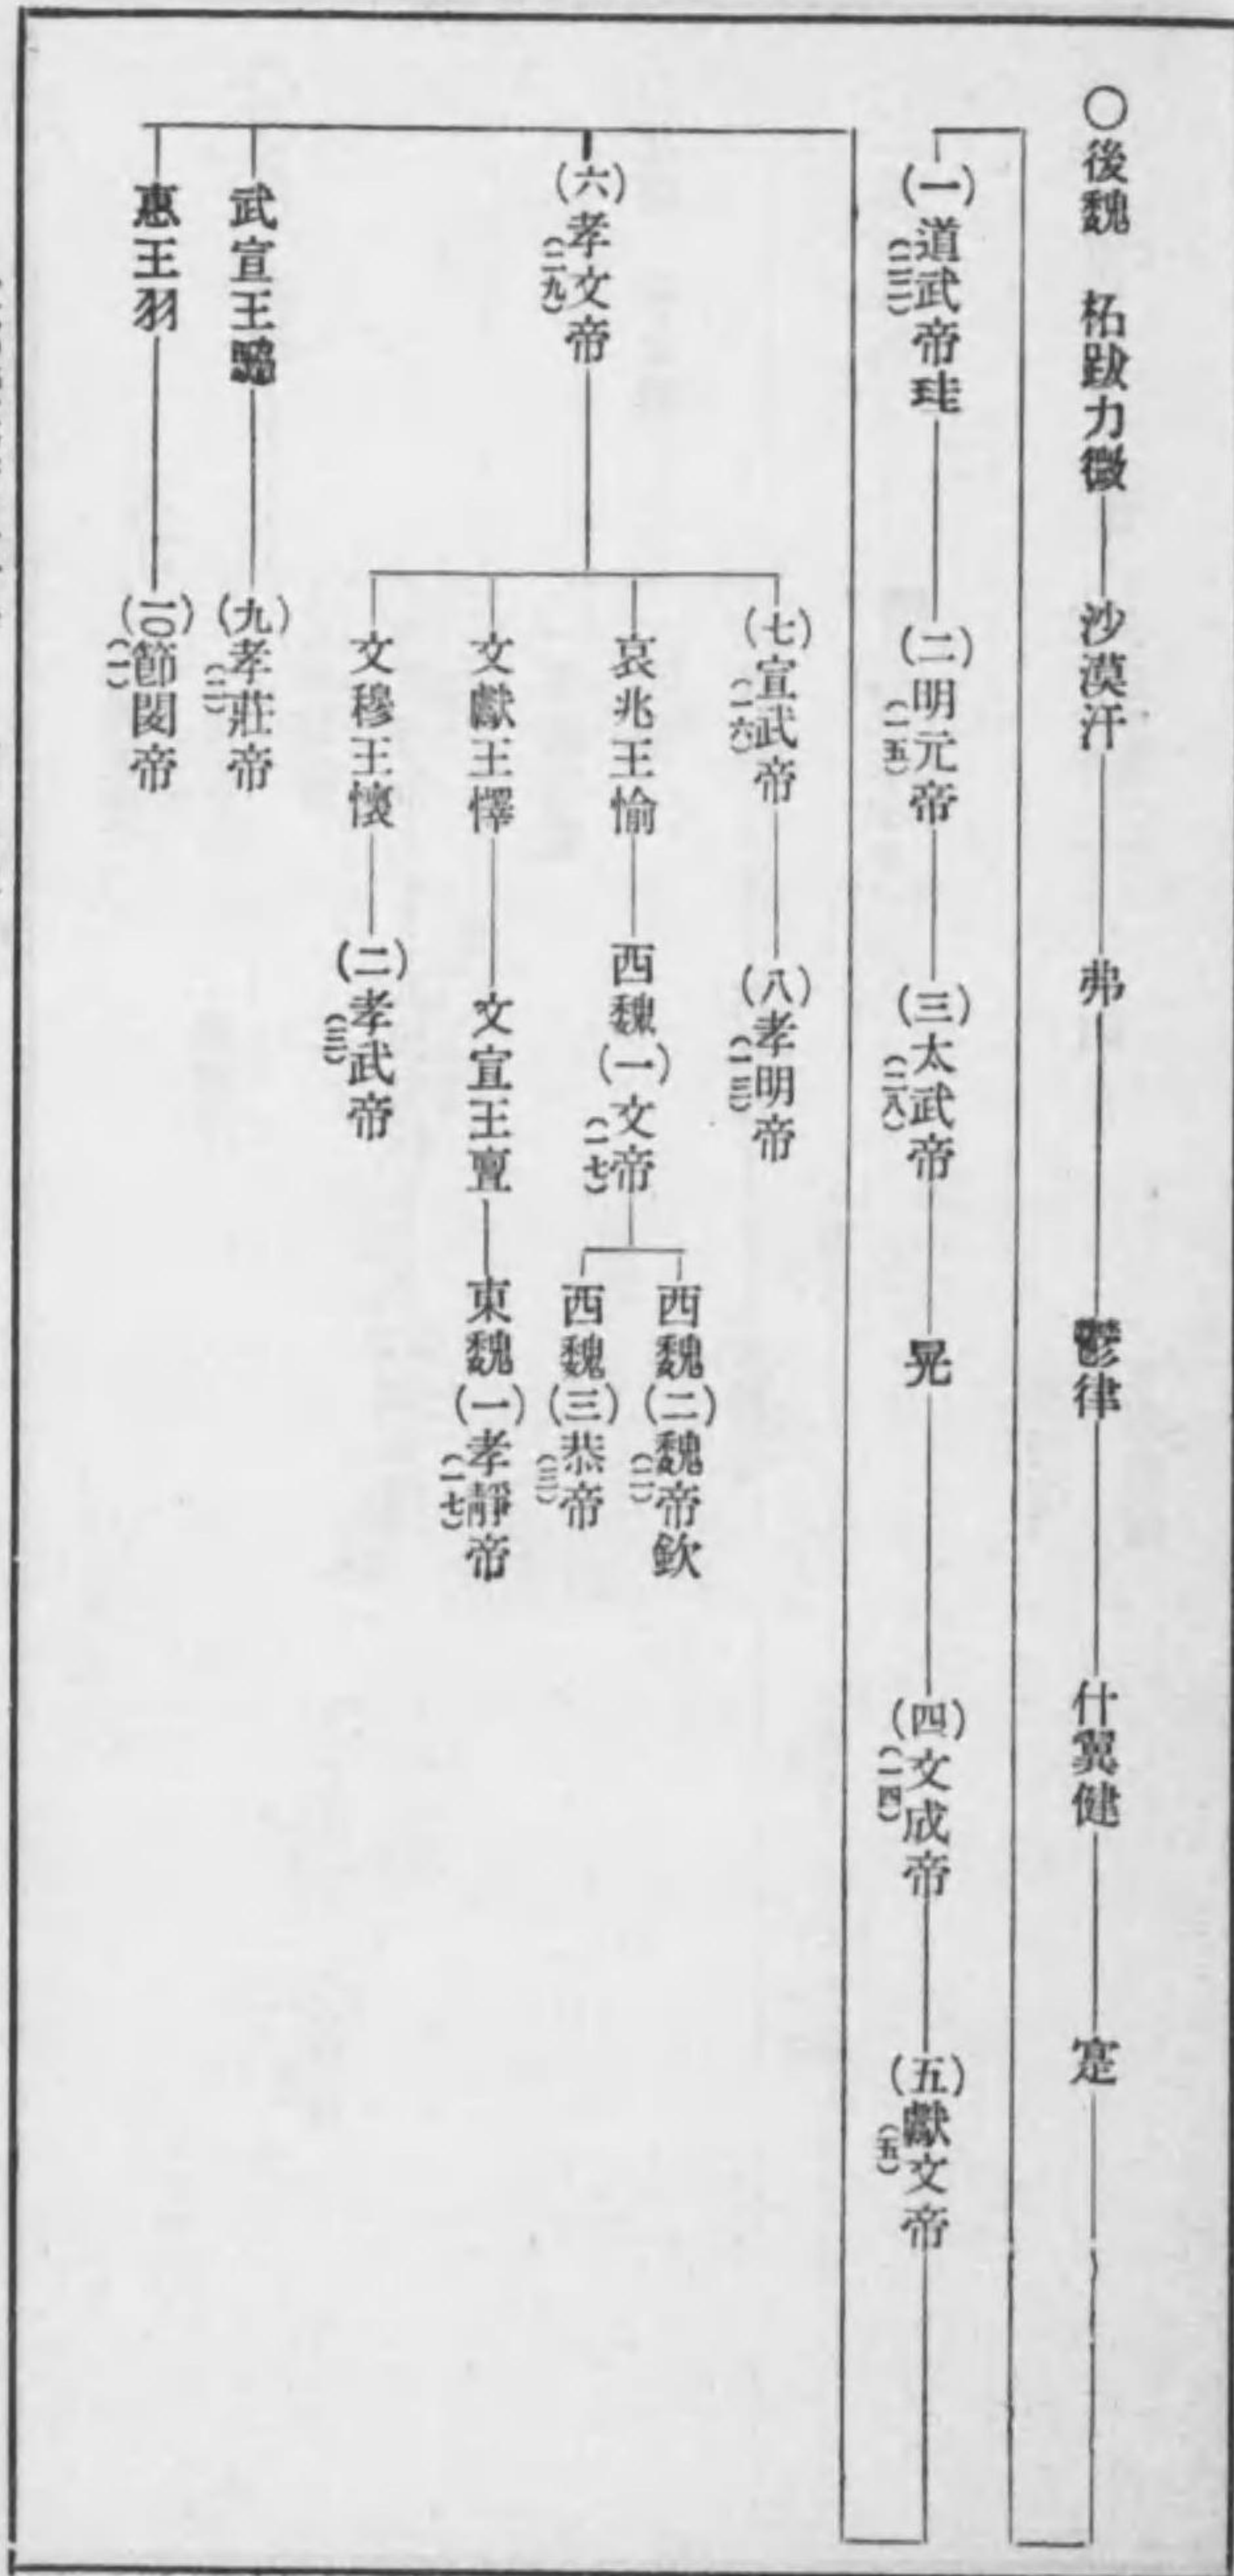 ○後魏　柘跋力微　沙漠汗　弗　鬱律　什翼健　寔
(一)道武帝珪(二三)　(二)明元帝(一五)　(三)太武帝(二八)　晃　(四)文成帝(一四)　(五)獻文帝(五)
(六)孝文帝(二九)
(七)宣武帝(一六)　(八)孝明帝(一三)
哀兆王愉　西魏(一)文帝(一七)
西魏(二)魏帝欽(二)
西魏(三)恭帝(三)
文獻王懌　文宣王亶　東魏(一)孝靜帝(一七)
文穆王懷　(二)孝武帝(三)
武宣王勰　(九)孝莊帝(二)
惠王羽　(一〇)節閔帝(一)